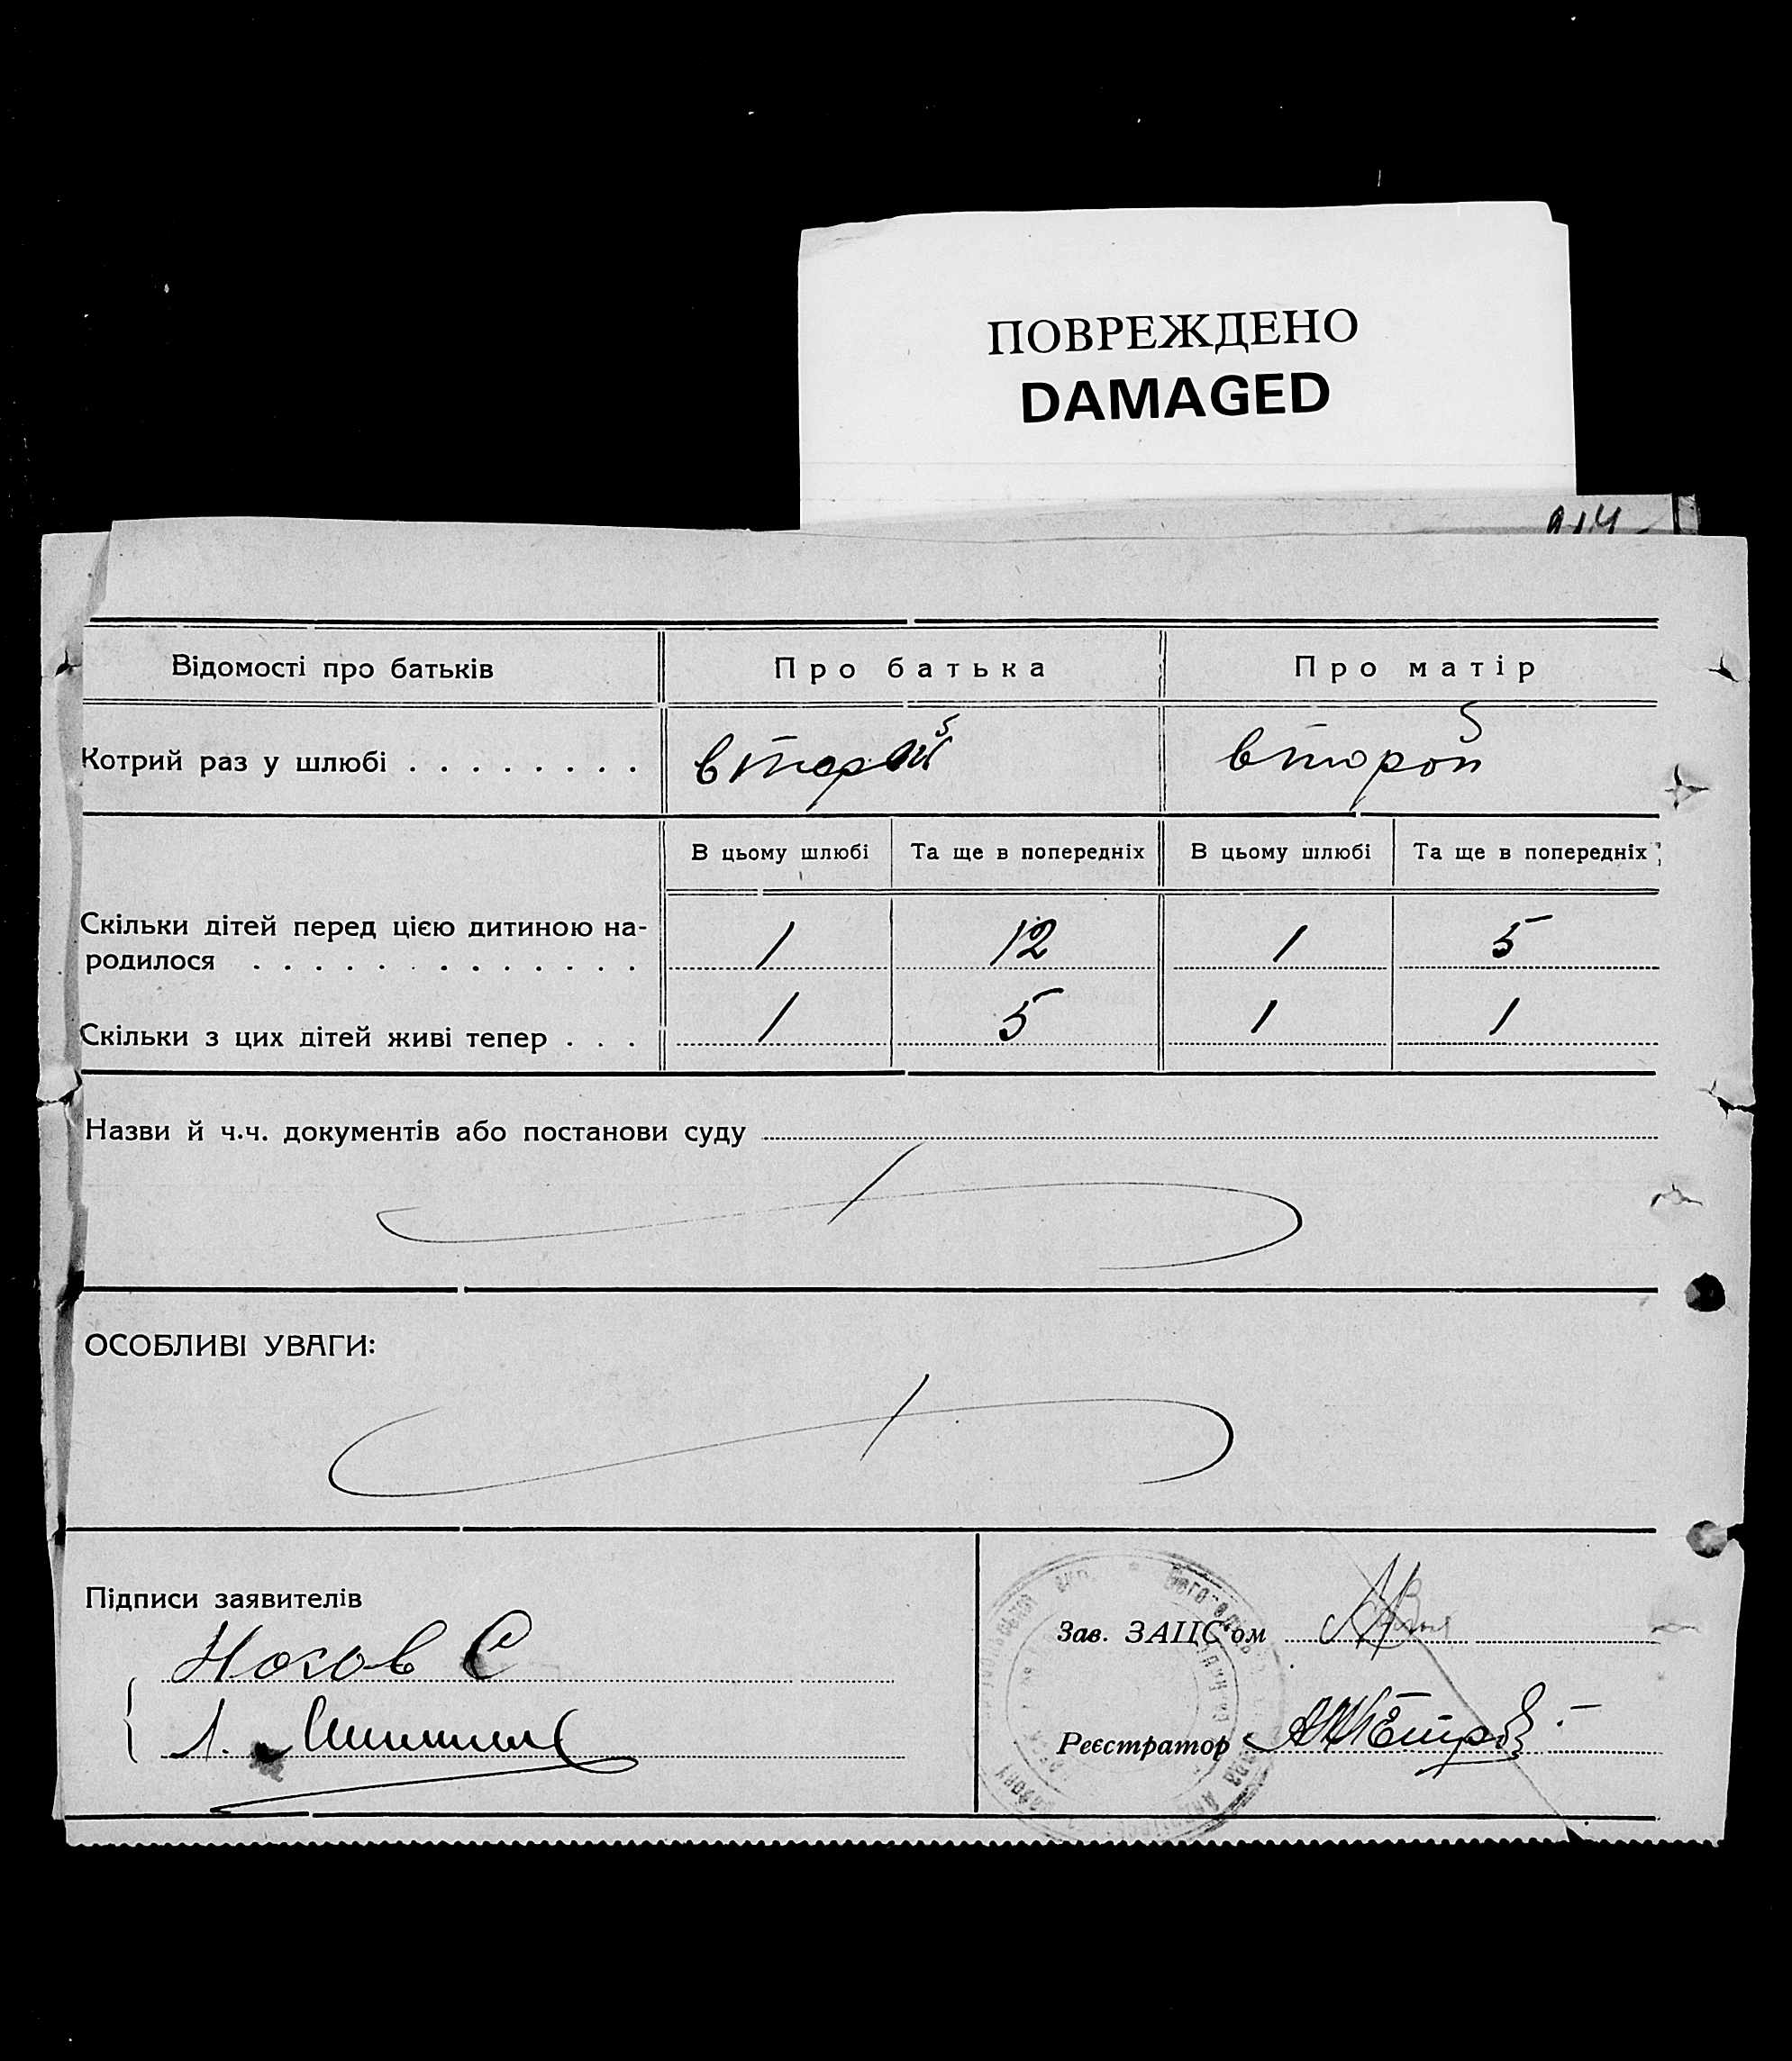 ПОВРЕЖДЕНО
DAMAGED
Відомості про батьків
Про батька
Про матір
Котрий раз у шлюбі . . . . . . . .
второй
второй
В цьому шлюбі
Та ще в попередніх
В цьому шлюбі
Та ще в попередніх
Скільки дітей перед цією дитиною на-
родилося . . . . . . . . . . . . .
1
12
1
5
Скільки з цих дітей живі тепер . . .
1
5
1
1
Назви й ч.ч. документів або постанови суду
ОСОБЛИВІ УВАГИ:
Підписи заявителів
Носов С
Зав. ЗАЦС'ом
Реєстратор